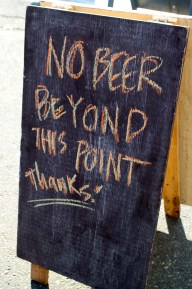 NO BEER
BEYOND
THIS POINT
"THANKS."